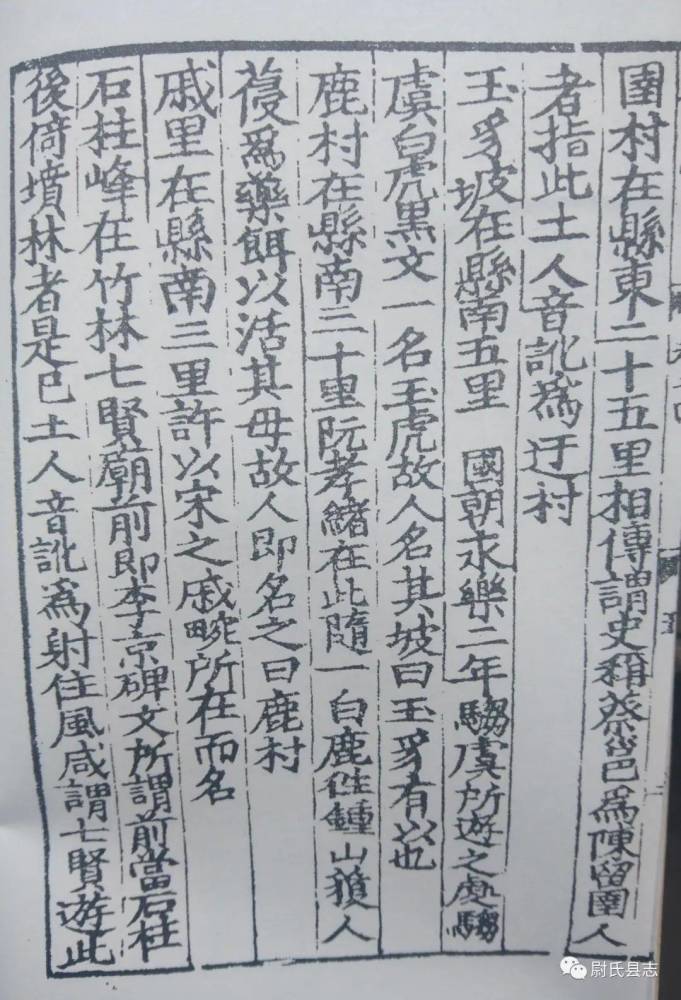 圉村在縣東二十五里相傳謂史稱蔡邕為陳留圉人
者指此土人音訛為迂村
玉豸坡在縣南五里 國朝永樂二年騶虞所遊之處騶
虞白虎黑文一名玉虎故人名其坡曰玉豸有以也
鹿村在縣南三十里阮孝緒在此隨一白鹿徃鍾山獲人
葠為藥餌以活其母故人即名之曰鹿村
戚里在縣南三里許以宋之戚畹所在而名
石柱峰在竹林七賢廟前即李京碑文所謂前當石柱
後倚墳林者是已土人音訛為射住風咸謂七賢遊此
尉氏县志